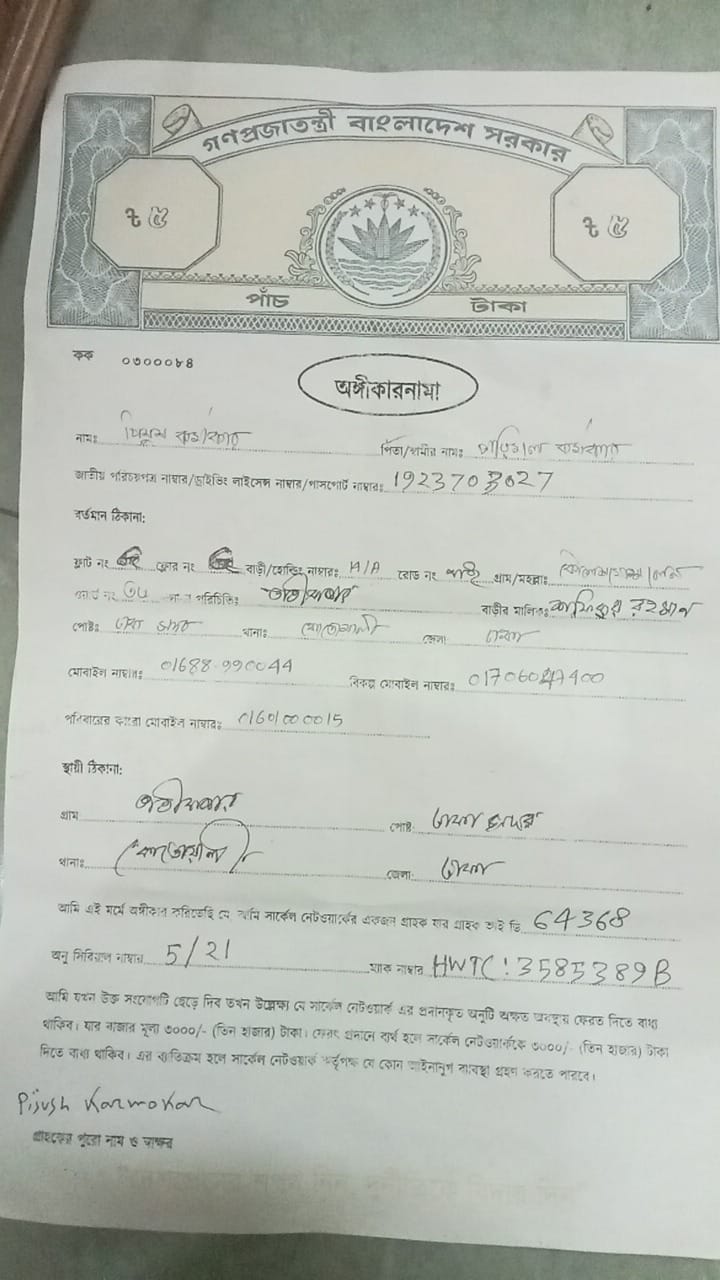 গণপ্রজাতন্ত্রী বাংলাদেশ সরকার
৳ ৫ ৳ ৫
পাঁচ টাকা
কক ০৩০০০৮৪
অঙ্গীকারনামা
নামঃ কর্মকার পিতা/স্বামীর নামঃ কর্মকার
জাতীয় পরিচয়পত্র নাম্বার/ড্রাইভিং লাইসেন্স নাম্বার/পাসপোর্ট নাম্বারঃ
বর্তমান ঠিকানা:
ফ্লাট নং ফ্লোর নং বাড়ী/হোল্ডিং নাম্বারঃ রোড নং গ্রাম/মহল্লাঃ
নং পরিচিতিঃ তাঁতীবাজার বাড়ীর মালিকঃ রহমান
পোষ্টঃ ঢাকা সদর থানাঃ কোতোয়ালী জেলা ঢাকা
মোবাইল নাম্বারঃ 01688-990044 বিকল্প মোবাইল নাম্বারঃ
পরিবারের কারো মোবাইল নাম্বারঃ 01601000015
স্থায়ী ঠিকানা:
গ্রাম তাঁতীবাজার পোষ্ট: ঢাকা সদর
থানাঃ কোতোয়ালী জেলা: ঢাকা
আমি এই মর্মে অঙ্গীকার করিতেছি যে আমি সার্কেল নেটওয়ার্কের একজন গ্রাহক যার গ্রাহক আই ডি 64368
অনু সিরিয়াল নাম্বার 5/21 ম্যাক নাম্বার HWTC:3585389B
আমি যখন উক্ত সংযোগটি ছেড়ে দিব তখন উল্লেক্ষ্য যে সার্কেল নেটওয়ার্ক এর প্রদানকৃত অনুটি অক্ষত অবস্থায় ফেরত দিতে বাধ্য
থাকিব। যার বাজার মূল্য ৩০০০/- (তিন হাজার) টাকা। ফেরৎ প্রদানে ব্যর্থ হলে সার্কেল নেটওয়ার্ককে ৩০০০/- (তিন হাজার) টাকা
দিতে বাধ্য থাকিব। এর ব্যতিক্রম হলে সার্কেল নেটওয়ার্ক কর্তৃপক্ষ যে কোন আইনানুগ ব্যবস্থা গ্রহণ করতে পারবে।
Pijush Karmokar
গ্রাহকের পুরো নাম ও স্বাক্ষর